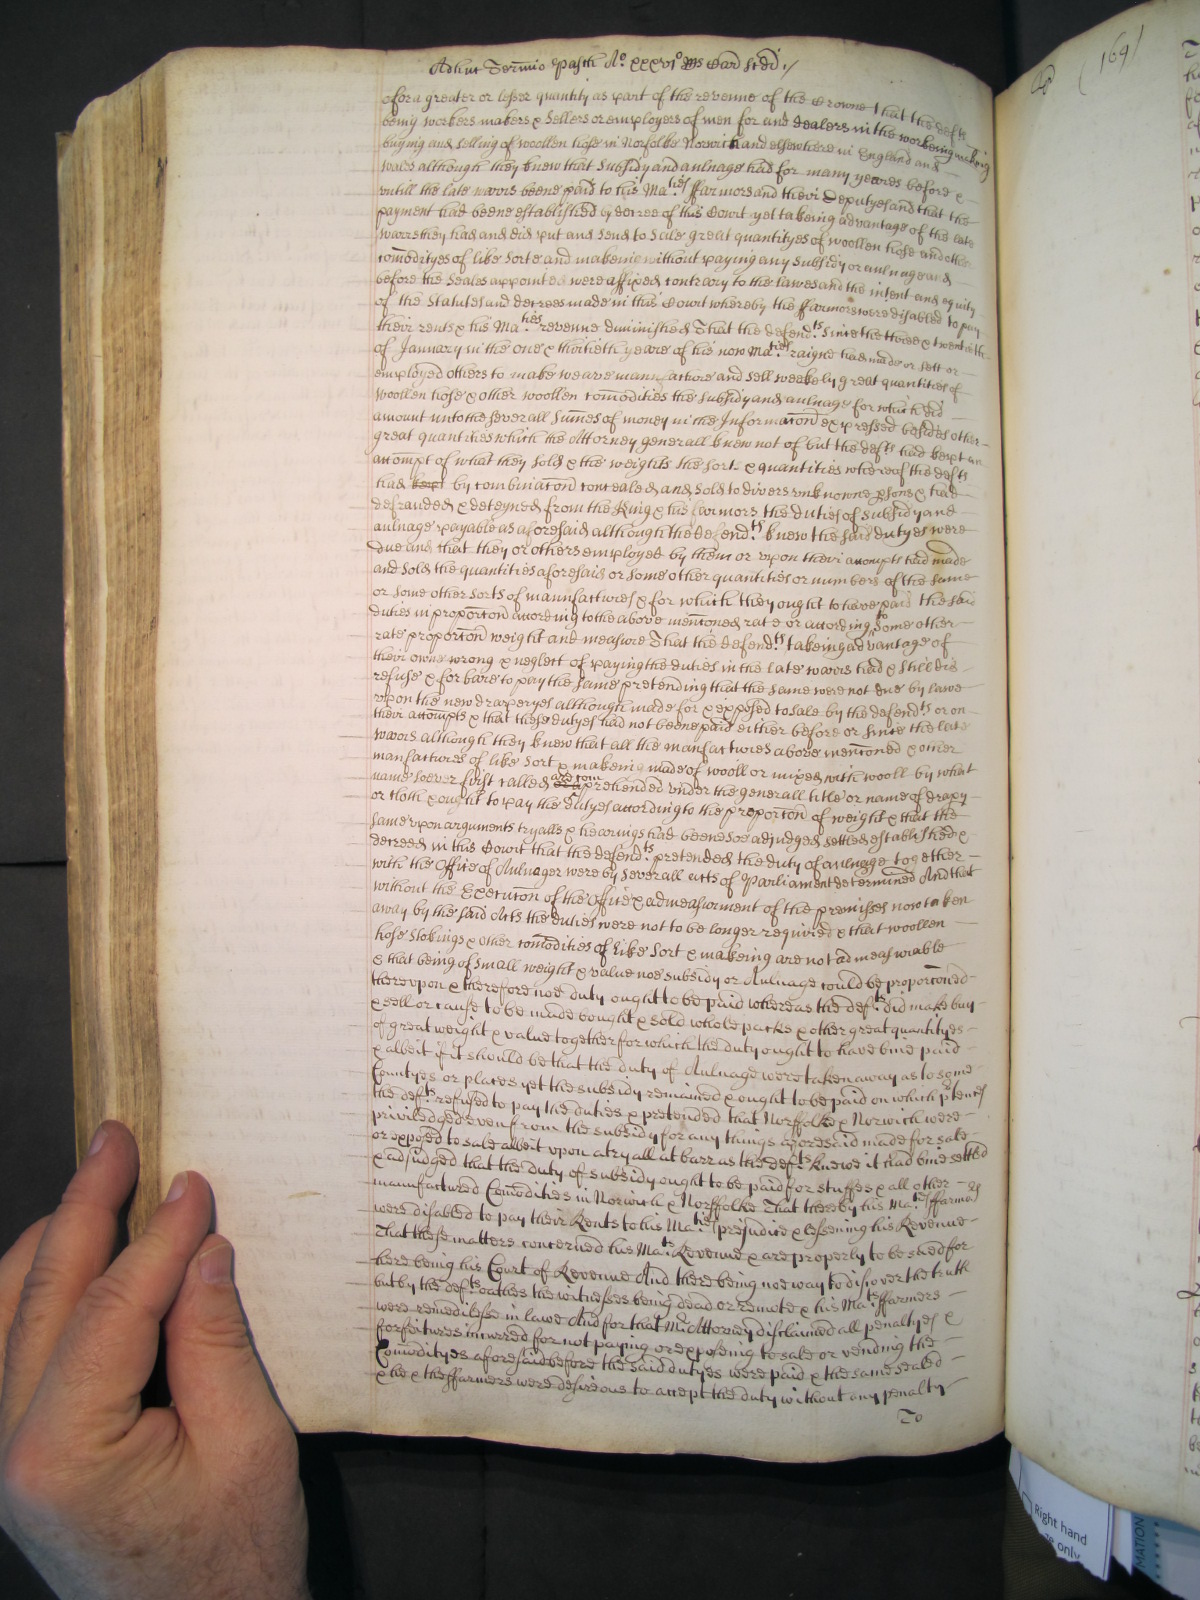 Adhuc Termio Pasch Ao. xxxvio Rs Card scdi /
(169)
ofor a greater or lesser quantity as part of the revenne of the Crowne that the defts
being workers makers & Sellers or employers of men for and dealers in the workeing makeing
buying and selling of woollen hose in Norfolke Norwich and elsewhere in England and
wales although they knew that Subsidy and aulnage had for many yeares before &
untill the late warrs beene paid to his Ma:ties ffarmors and theire Deputyes and that the
payment had beene established by decree of this Court yet takeing advantage of the late
warrs they had and did put and send to Sale great quantityes of woollen hose and other
comodityes of like Sorte and makeing without paying any Subsidy or aulnage and
before the Seales appointed were affixed contrary to the lawes and the intent and equity
of the Statutes and decrees made in this Court whereby the ffarmors were disabled to pay
their rents & his Ma:ties revenne diminished That the defend:ts since the three & twentieth
of January in the one & thirtieth yeare of his now Ma:ties raigne had made or sett or
employed others to make weave manufacture and sell weekely great quantities of
woollen hose & other woollen comodities the Subsidy and aulnage for which did
amount unto the severall Sumes of money in the Informacon expressed besides other
great quantities which the Attorney generall knew not of but the defts had kept an
accompt of what they sold & the weights the sort & quantities whereof the defts
had kept by combinacon concealed and sold to divers unknowne psons & had
defrauded & deteyned from the King & his farmors the duties of subsidy and
aulnage payable as aforesaid although the defend:ts knew the said dutyes were
due and that they or others employed by them or upon their accompts had made
and sold the quantities aforesaid or some other quantities or numbers of the same
or some other sorts of manufactures & for which they ought to have paid the said
duties in proporcon according to the above menconed rate or according to Some other
rate proporcon weight and measure That the defend:ts takeing advantage of
their owne wrong & neglect of paying the duties in the late warrs had & still did
refuse & forbare to pay the same pretending that the same were not due by lawe
upon the new draperyes although made for & exposed to sale by the defend:ts or on
their accompts & that these dutyes had not beene paid either before or since the late
warrs although they knew that all the manfactures above menconed & other
manfactures of like sort & makeing made of wooll or mixed with wooll by what
name soever first called are comprehended under the generall title or name of drapy
or cloth & ought to pay the dutyes according to the proporcon of weight & that the
same upon arguments tryalls & hearings had beene soe adjudged setled established &
decreed in this Court that the defend:ts pretended the duty of aulnage together
with the Office of Aulnager were by severall acts of Parliament determined And that
without the Execucon of the Office & admeasurment of the premisses now taken
away by the said Acts the duties were not to be longer required & that woollen
hose Stokings & other comodities of like Sort & makeing are not admeasurable
& that being of small weight & value noe subsidy or Aulnage could be proporconed
thereupon & therefore noe duty ought to be paid whereas the def:ts did make buy
& sell or cause to be made bought & sold whole packs & other great quantityes
of great weight & value together for which the duty ought to have bine paid
& albeit if it should be that the duty of Aulnage were taken away as to some
Countyes or places yet the subsidy remained & ought to be paid on which ptences
the def:ts refused to pay the duties & pretended that Norffolke & Norwich were
priviledged even from the subsidy for any things aforesaid made for sale
or exposed to sale albeit upon a tryall at barr as the def:ts knewe it had bine setled
& adjudged that the duty of subsidy ought to be paid for stuffes & all other
manufactured Comodities in Norwich & Norffolke That thereby his Ma:ts ffarmors
were disabled to pay their Rents to his Ma:tie prejudice & lessening his Revenue
That these matters concerned his Ma:ts Revenue & are properly to be sued for
here being his Court of Revenue And there being noe way to discover the truth
but by the def:ts oathes the witnesses being dead or remote & his Ma:ts ffarmers
were remedilesse in lawe And for that Mr Attorney disclaimed all penaltyes &
forfeitures incurred for not paying or exposing to sale or vending the
Comodityes aforesaid before the said dutyes were paid & the same sealed
& he & the ffarmers were desireous to accept the duty without any penalty
To
Right hand
only
MATION